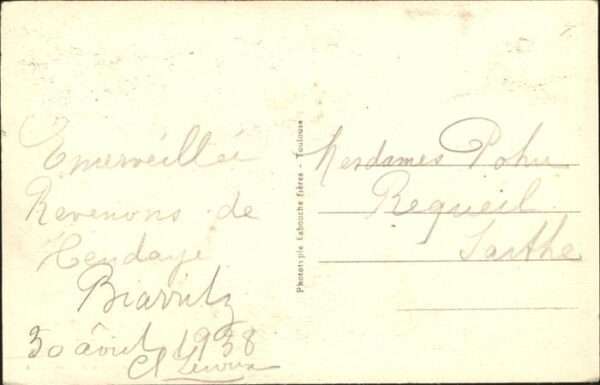 Emerveillés
Revenons de
Hendaye
Biarritz
30 août 1938
Phototypie Labouche frères - Toulouse
Mesdames Pohu
Requeil
Sarthe